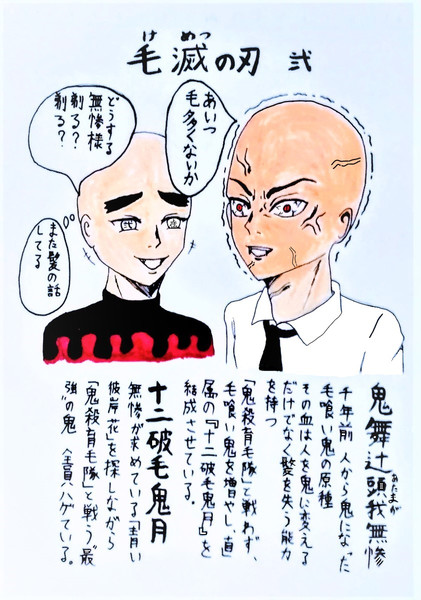 けめつ
毛滅の刃 弐
あいつ
毛多くないか
どうする
無惨様
剃る?
剃る?
また髪の話
してる
鬼舞辻頭我無惨
あたまが
千年前人から鬼になった
毛喰い鬼の原種
その血は人を鬼に変える
だけでなく髪を失う能力
を持つ
「鬼殺育毛隊」と戦わず、
毛喰い鬼を増やし、直
属の『十二破毛鬼月』を
結成させている。
十二破毛鬼月
無惨が求めている「青い
彼岸花」を探しながら
「鬼殺育毛隊」と戦う"最
強"の鬼 全員ハゲている。